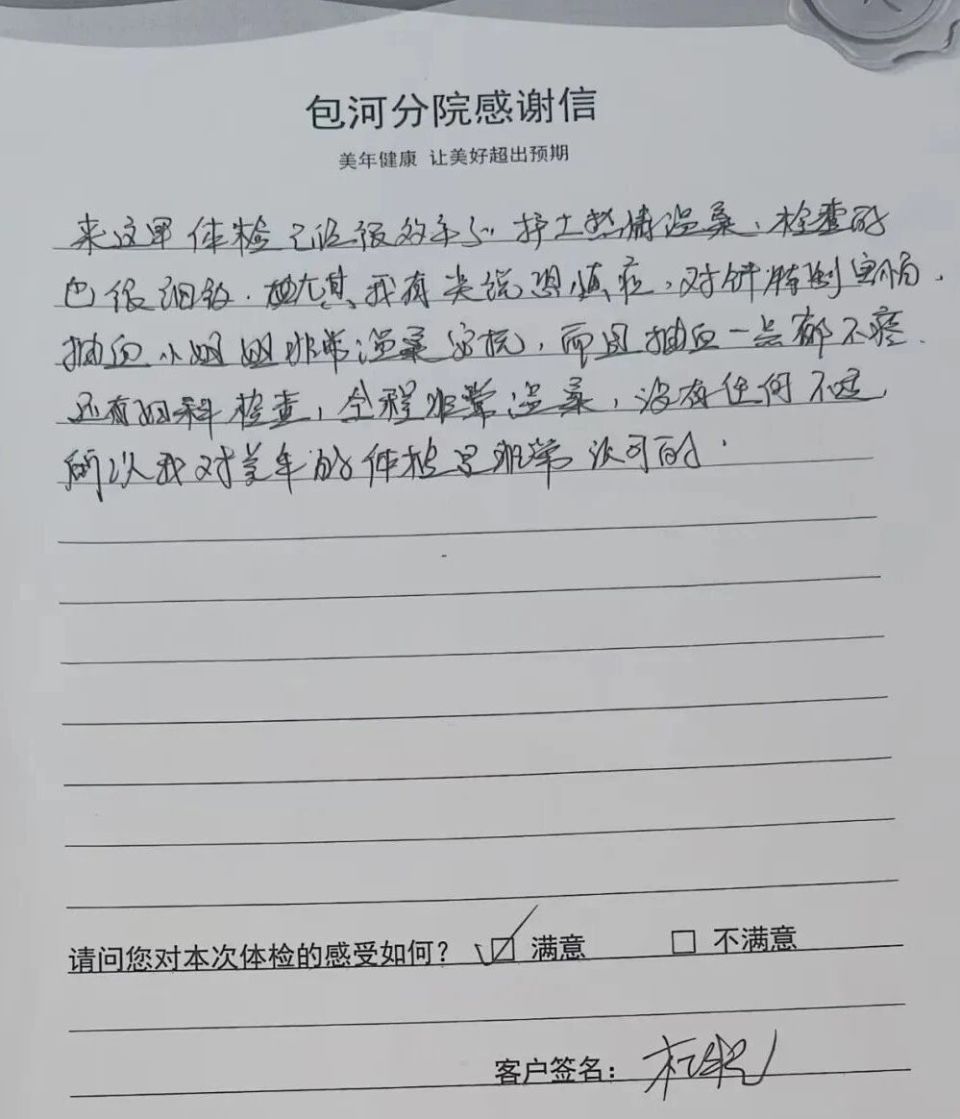 包河分院感谢信
美年健康 让美好超出预期
来这里体检已经很多年了 护士热情温柔、检查的
也很细致. 尤其、我有尖锐恐惧症,对针特别害怕.
抽血小姐姐非常温柔安抚,而且抽血一点都不疼.
还有妇科检查,全程非常温柔,没有任何不适
所以我对美年的体检是非常认可的.
请问您对本次体检的感受如何? 满意 不满意
客户签名: